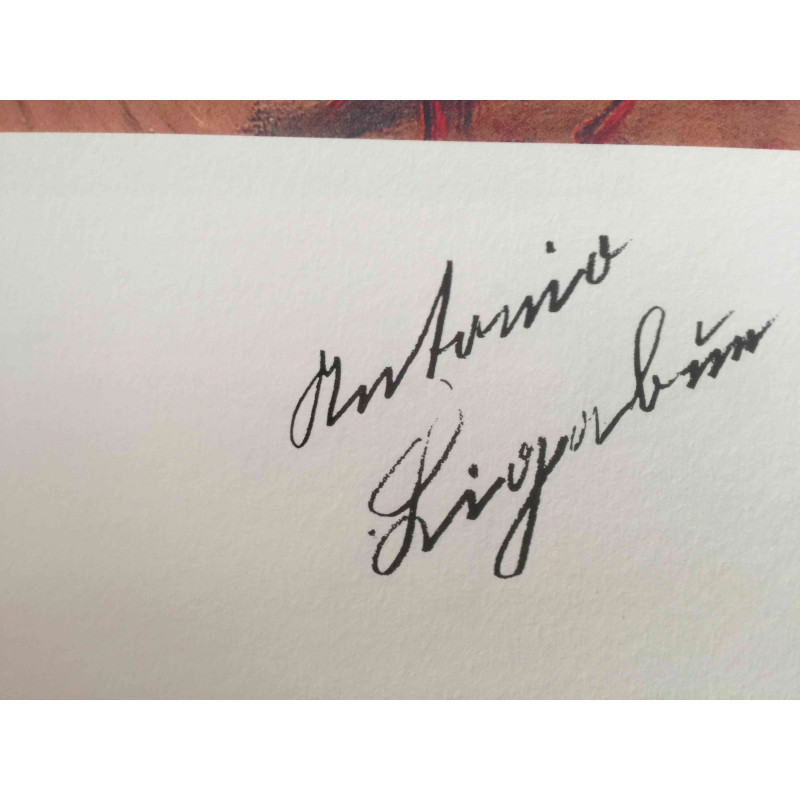 Antonio
Ligabŭe